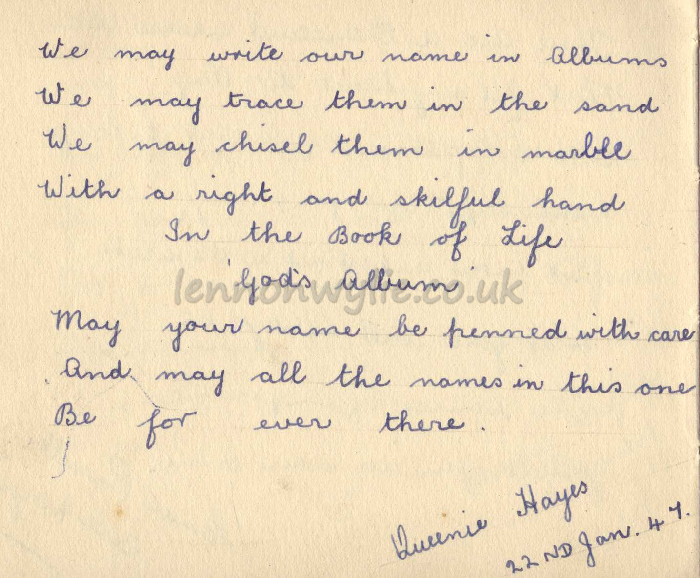 We may write our name in Albums
We may trace them in the sand
We may chisel them in marble
With a right and skilful hand
In the Book of Life
'God's Album'
lennonwylie.co.uk
May your name be penned with care
And may all the names in this one
Be for ever there.
Queenie Hayes
22ND Jan. 47.